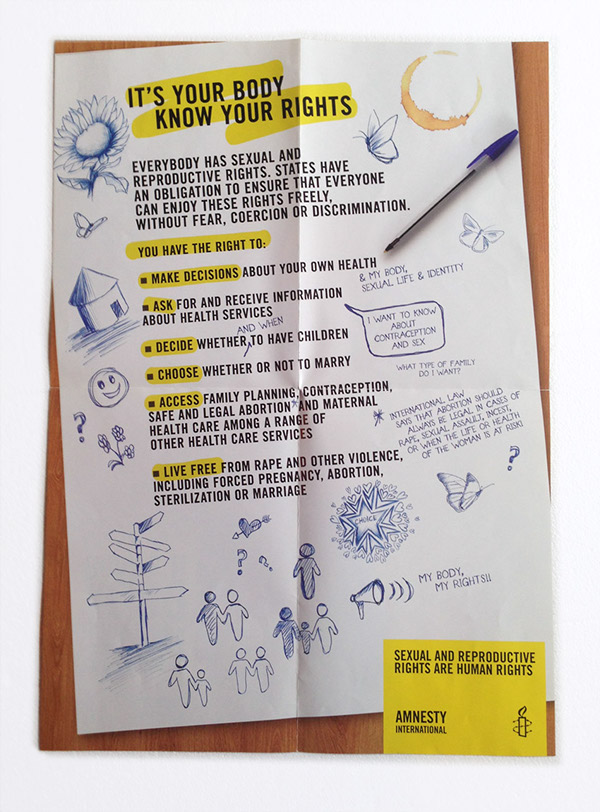 IT'S YOUR BODY
KNOW YOUR RIGHTS
EVERYBODY HAS SEXUAL AND
REPRODUCTIVE RIGHTS. STATES HAVE
AN OBLIGATION TO ENSURE THAT EVERYONE
CAN ENJOY THESE RIGHTS FREELY,
WITHOUT FEAR, COERCION OR DISCRIMINATION.
YOU HAVE THE RIGHT TO:
■ MAKE DECISIONS ABOUT YOUR OWN HEALTH
& MY BODY,
SEXUAL LIFE & IDENTITY
■ ASK FOR AND RECEIVE INFORMATION
ABOUT HEALTH SERVICES
I WANT TO KNOW
ABOUT
CONTRACEPTION
AND SEX
AND WHEN
■ DECIDE WHETHER TO HAVE CHILDREN
WHAT TYPE OF FAMILY
DO I WANT?
■ CHOOSE WHETHER OR NOT TO MARRY
■ ACCESS FAMILY PLANNING, CONTRACEPTION,
SAFE AND LEGAL ABORTION* AND MATERNAL
HEALTH CARE AMONG A RANGE OF
OTHER HEALTH CARE SERVICES
* INTERNATIONAL LAW
SAYS THAT ABORTION SHOULD
ALWAYS BE LEGAL IN CASES OF
RAPE, SEXUAL ASSAULT, INCEST,
OR WHEN THE LIFE OR HEALTH
OF THE WOMAN IS AT RISK!
?
?
■ LIVE FREE FROM RAPE AND OTHER VIOLENCE,
INCLUDING FORCED PREGNANCY, ABORTION,
STERILIZATION OR MARRIAGE
CHOICE
? ? ?
MY BODY,
MY RIGHTS!!
SEXUAL AND REPRODUCTIVE
RIGHTS ARE HUMAN RIGHTS
AMNESTY
INTERNATIONAL